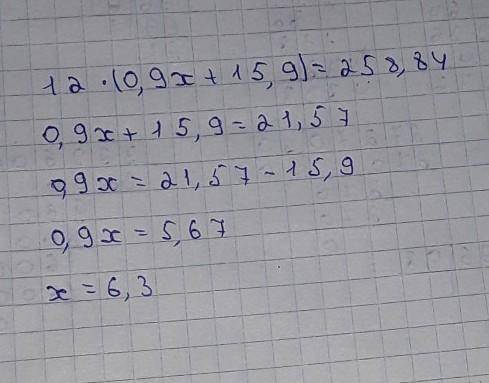 12 · (0,9x + 15,9) = 258,84
0,9x + 15,9 = 21,57
0,9x = 21,57 - 15,9
0,9x = 5,67
x = 6,3